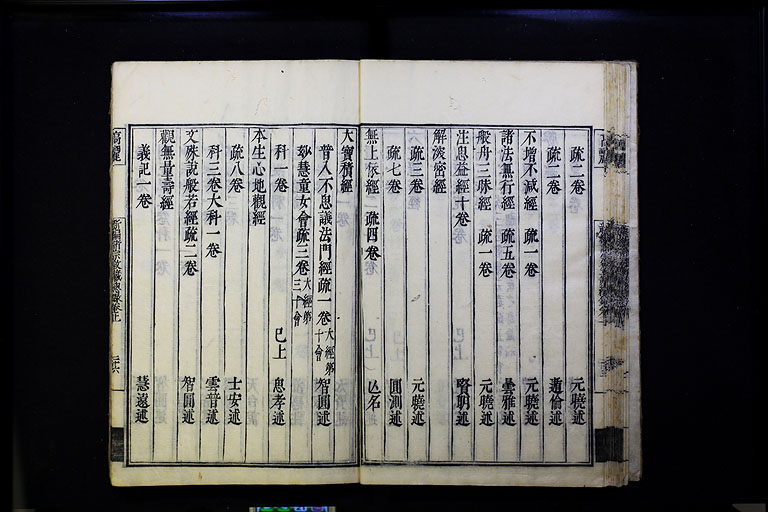 疏二卷 元曉述
疏二卷 道倫述
不增不減經 疏一卷 元曉述
諸法無行經 疏五卷 曇雅述
般舟三昧經 疏一卷 元曉述
注思益經十卷 賢明述
解深密經
疏三卷 元曉述
疏七卷 圓測述
無上依經 疏四卷 亾名
大寶積經
普入不思議法門經疏一卷 大經第十會 智圓述
妙慧童女會疏三卷 大經第三十會
科一卷 已上 思孝述
本生心地觀經
疏八卷 士安述
科三卷大科一卷 雲普述
文殊說般若經疏二卷 智圓述
觀無量壽經
義記一卷 慧遠述
高麗 新編諸宗教藏總錄卷上